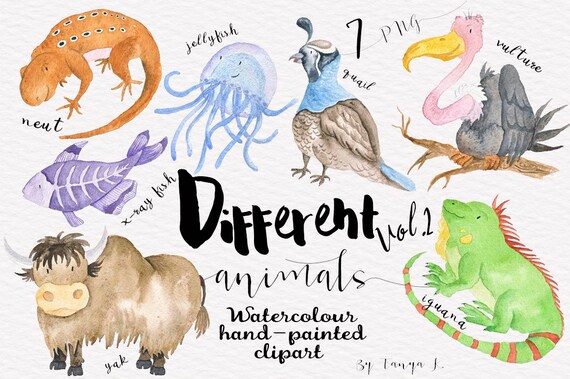 jellyfish
7 PNG
quail
vulture
neut
x-ray fish
Different vol.2
animals
Watercolour
hand-painted
clipart
iguana
yak
By Tanya K.